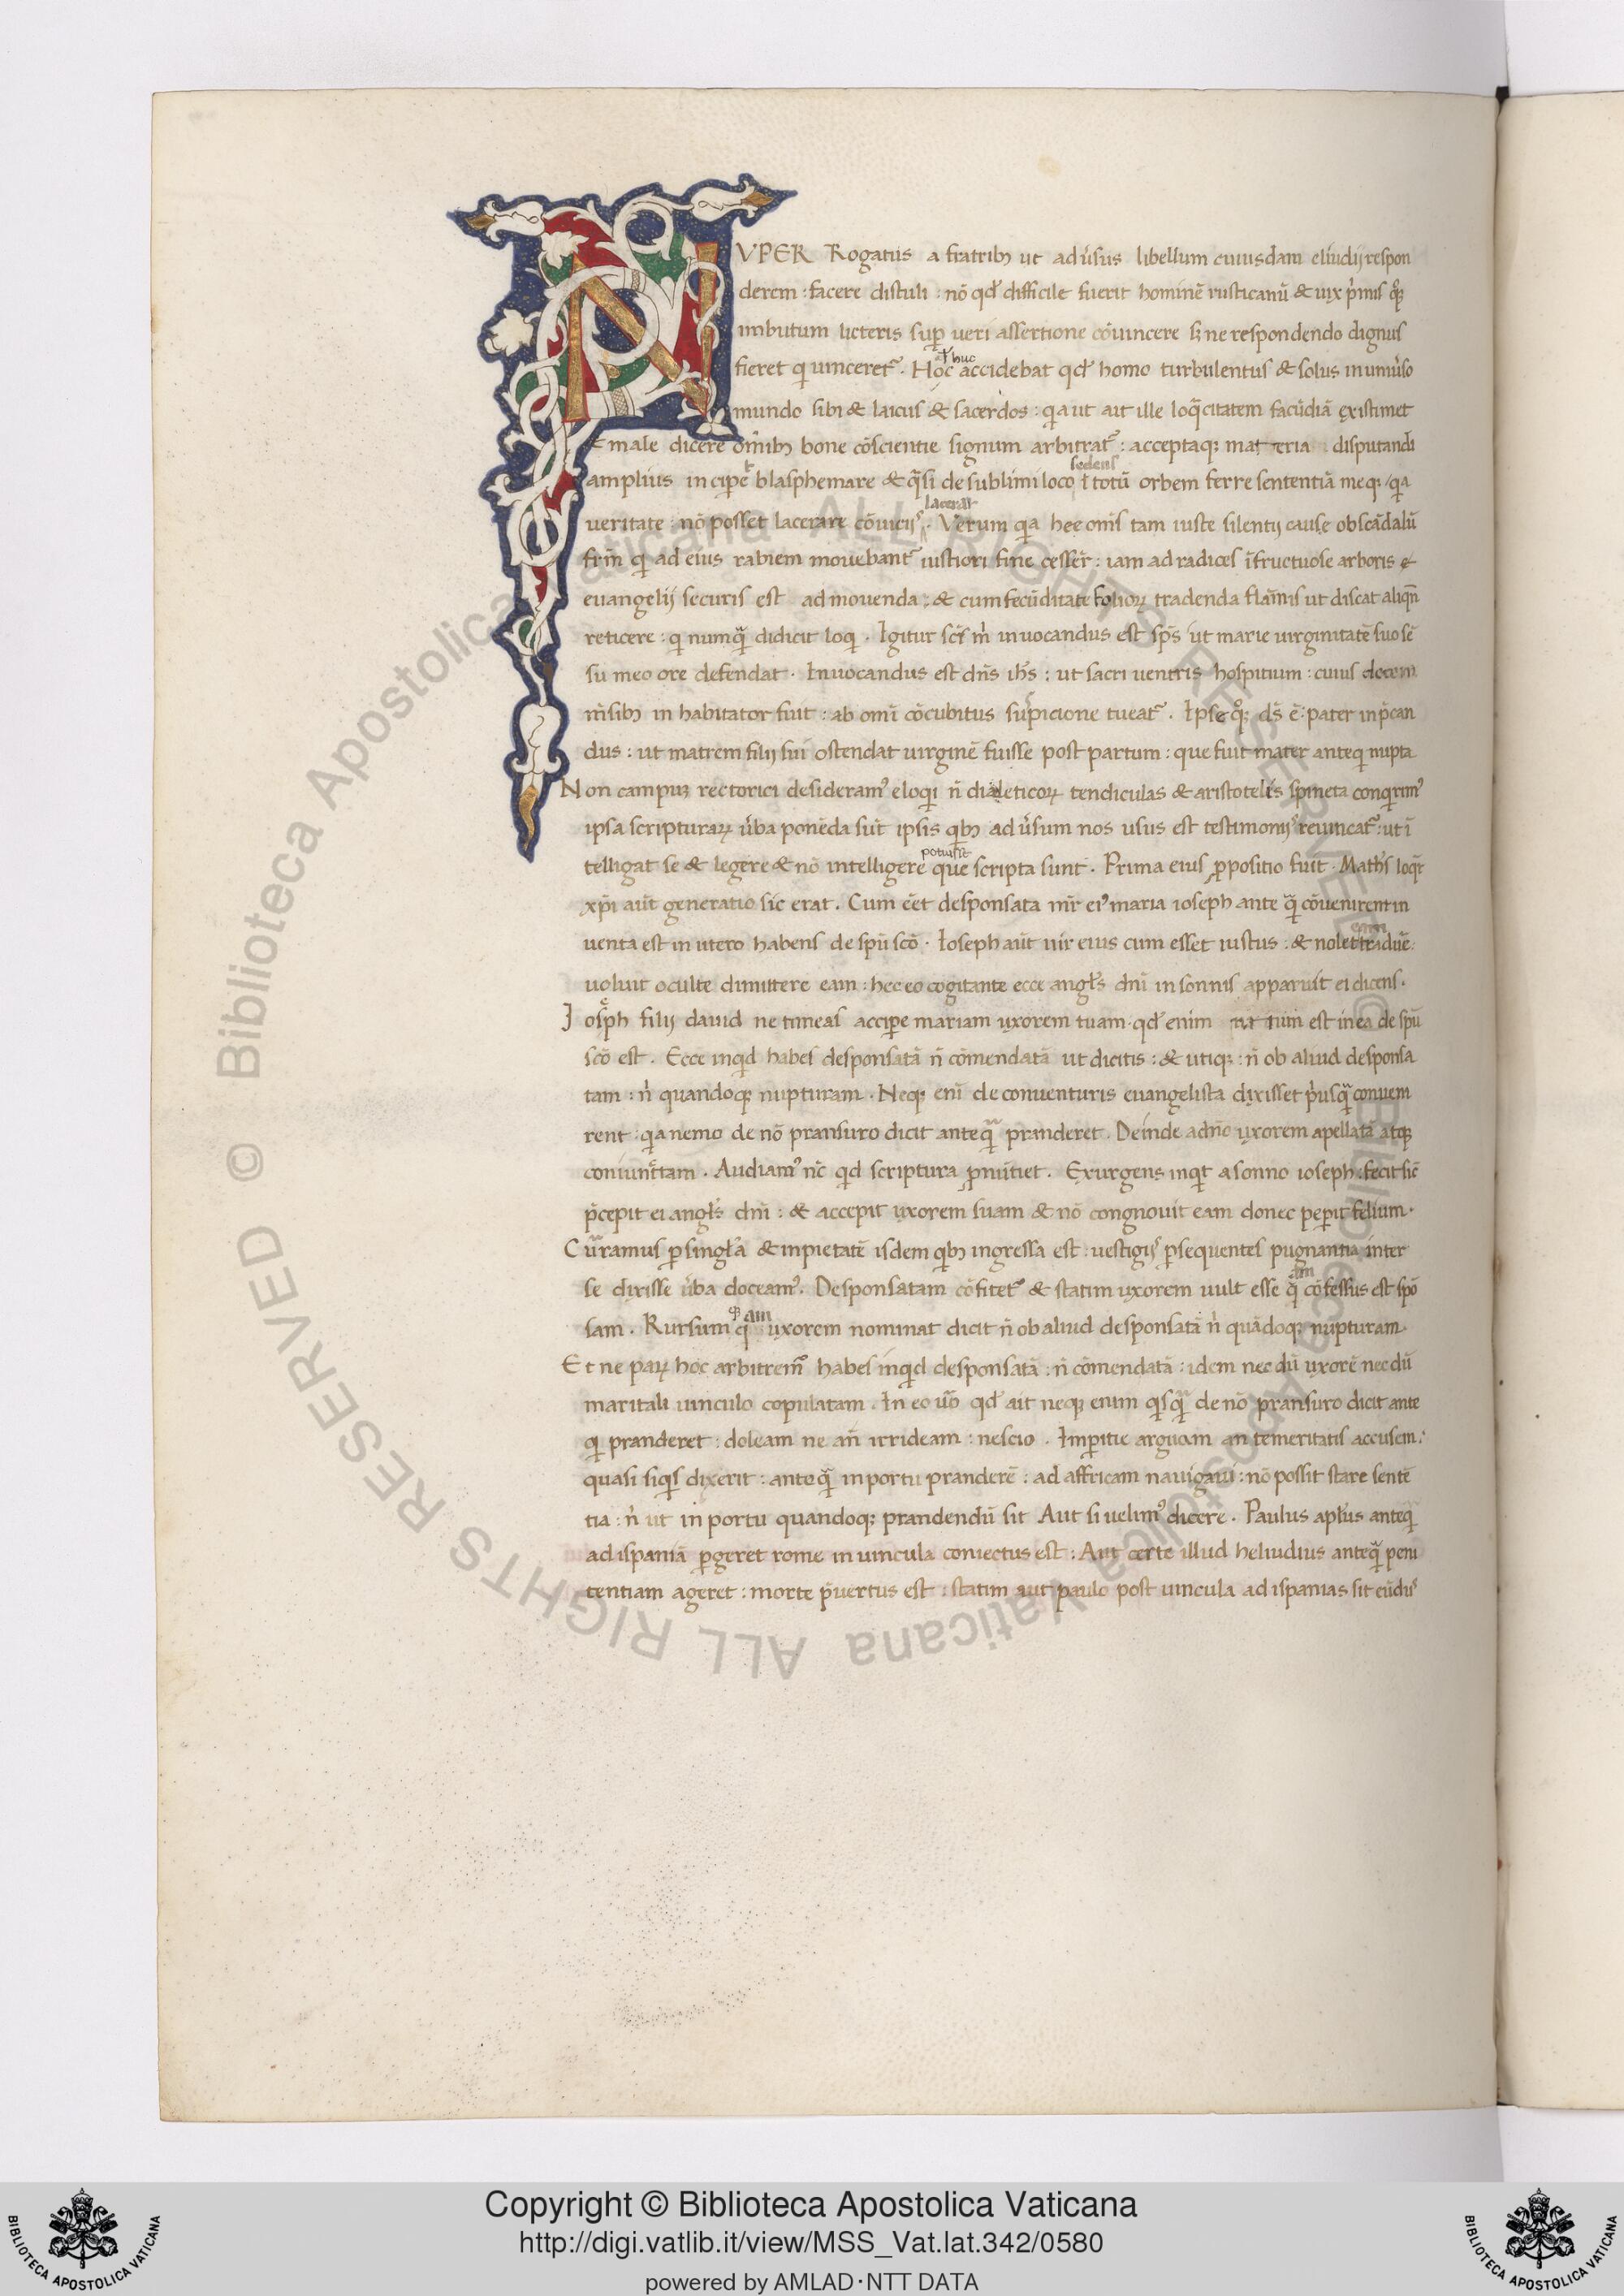 NVPER Rogatus a fratribꝫ ut adu̾sus libellum cuiusdam eliudij respon
derem : facere distuli : nō qđ difficile fuerit hominē rusticanū & uix p̾mis quoqꝫ
imbutum licteris suꝑ ueri assertione cōuincere sꝫ ne respondendo dignus
fieret qi uinceretᷣ . Hoc adhuc accidebat qđ homo turbulentus & solus in uniu̾so
mundo sibi & laicus & sacerdos : qia ut ait ille loqͣcitatem facūdiā existimet
Et male dicere om̄ibꝫ bone cōscientie signum arbitratᷣ : acceptaqꝫ materia disputandi
amplius incipet blasphemare & qͣsi de sublimi loco sedens ī totū orbem ferre sententiā meqꝫ qia
ueritate : nō posset lacerare cōuicijs lacerat . Verum qia hec om̄s tam iuste silentij cause ob scādalū
fr̄m qi ad eius rabiem mouebantᷣ iustiori fine cesser̄ : iam ad radices īfructuose arboris
euangelij securis est admouenda : & cum fecūditate folioꝝ tradenda flam̄is ut discat aliqn̄
reticere : qi numqͣ didicit loqi . Igitur sc̄s m̾ inuocandus est sp̄s ut marie uirginitatē suo sē
su meo ore defendat . Inuocandus est dn̄s ih̄s : ut sacri uentris hospitium : cuius decem
m̄sibꝫ inhabitator fuit : ab omī cōcubitus supicione tueatᷣ . Ipse quoqꝫ ds̄ ē : pater inp̄can
dus : ut matrem filij sui ostendat uirginē fuisse post partum : que fuit mater anteqi nupta
Non campuꝫ rectorici desideramꝰ eloqi n̄ dialeticoꝝ tendiculas & aristotelis spineta conqirimꝰ
ipsa scripturaꝝ u̾ba ponēda sūt ipsis qibꝫ adu̾sum nos usus est testimonijs reuincatᷣ : ut ī
telligat se & legere & nō intelligere potuisse que scripta sunt . Prima eius ꝓpositio fuit . Math̄s loqr̄
xp̄i aūt generatio sic erat . Cum ēet desponsata mr̄ eiꝰ maria ioseph ante qͣ cōuenirent in
uenta est in utero habens de spū scō . Ioseph aūt uir eius cum esset iustus : & nollet eam traduc̄e
uoluit occulte dimittere eam : hec eo cogitante ecce angl̄s dn̄i in sonnis apparuit ei dicens .
Ioseph filij dauid ne timeas acciꝑe mariam uxorem tuam . qđ enim natum est in ea de spū
scō est . Ecce inqid habes desponsatā n̄ cōmendatā ut dicitis : & utiqꝫ : n̄ ob aliud desponsa
tam : n̾ quandoqꝫ nupturam . Neqꝫ enī de conuenturis euangelista dixisset p̾usqͣ conueni
rent : qia nemo de nō pransuro dicit anteqͣ pranderet . Deinde adn̄o uxorem apellatā atqꝫ
coniunctam . Audiamꝰ nc̄ qid scriptura ꝓnūtiet . Exurgens inqit a sonno ioseph : fecit sic
p̄cepit ei angl̄s dn̄i : & accepit uxorem suam & nō congnouit eam donec peꝑit felium .
Curramus ꝑ singl̄a & inpietatē isdem qibꝫ ingressa est : uestigijs ꝑsequentes pugnantia inter
se dixisse u̾ba doceamꝰ . Desponsatam cōfitetᷣ & statim uxorem uult esse qͣm cōfessus est spō
sam . Rursum qͣm uxorem nominat dicit n̄ ob aliud desponsatā n̾ quādoqꝫ nupturam
Et ne paꝝ hoc arbitremᷣ habes inqid desponsatā : n̄ cōmendatā : idem nec dū uxorē nec dū
maritali uinculo copulatam . In eo u̾o qđ ait neqꝫ enim qisqͣ de nō pransuro dicit ante
qi pranderet : doleam ne an̄ irrideam : nescio . Imꝑitie arguam an temeritatis accusem :
quasi siqis dixerit : anteqͣ in portu pranderē : ad affricam nauigaui : nō possit stare sentē
tia : n̾ ut in portu quandoqꝫ prandendū sit Aut si uelimꝰ dicere . Paulus apl̄us anteqͣ
ad ispaniā ꝑgeret rome in uincula coniectus est : Aut certe illud heliudius anteqͣ peni
tentiam ageret : morte p̄uertus est : statim aut paulo post uincula ad ispanias sit eūdū
© Biblioteca Apostolica Vaticana ALL RIGHTS RESERVED © Biblioteca Apostolica Vaticana ALL RIGHTS RESERVED
Copyright © Biblioteca Apostolica Vaticana
http://digi.vatlib.it/view/MSS_Vat.lat.342/0580
powered by AMLAD·NTT DATA
BIBLIOTECA APOSTOLICA VATICANA
BIBLIOTECA APOSTOLICA VATICANA